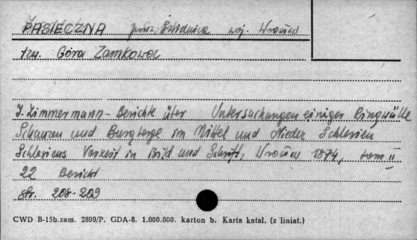 PASIECZNA pow. Świdnica woj. Wrocław
tzw. Góra Zamkowa
J. Zimmermann - Berichte über Untersuchungen einiger Ringwälle
Schanzen und Burgberge im Mittel und Nieder Schlesien
Schlesiens Vorzeit in Bild und Schrift, Wrocław 1874, tom II
22 Bericht
str. 206-209
CWD B-15b.zam. 2899/P. GDA-8. 1.000.000. karton b. Karta katal. (z liniat.)